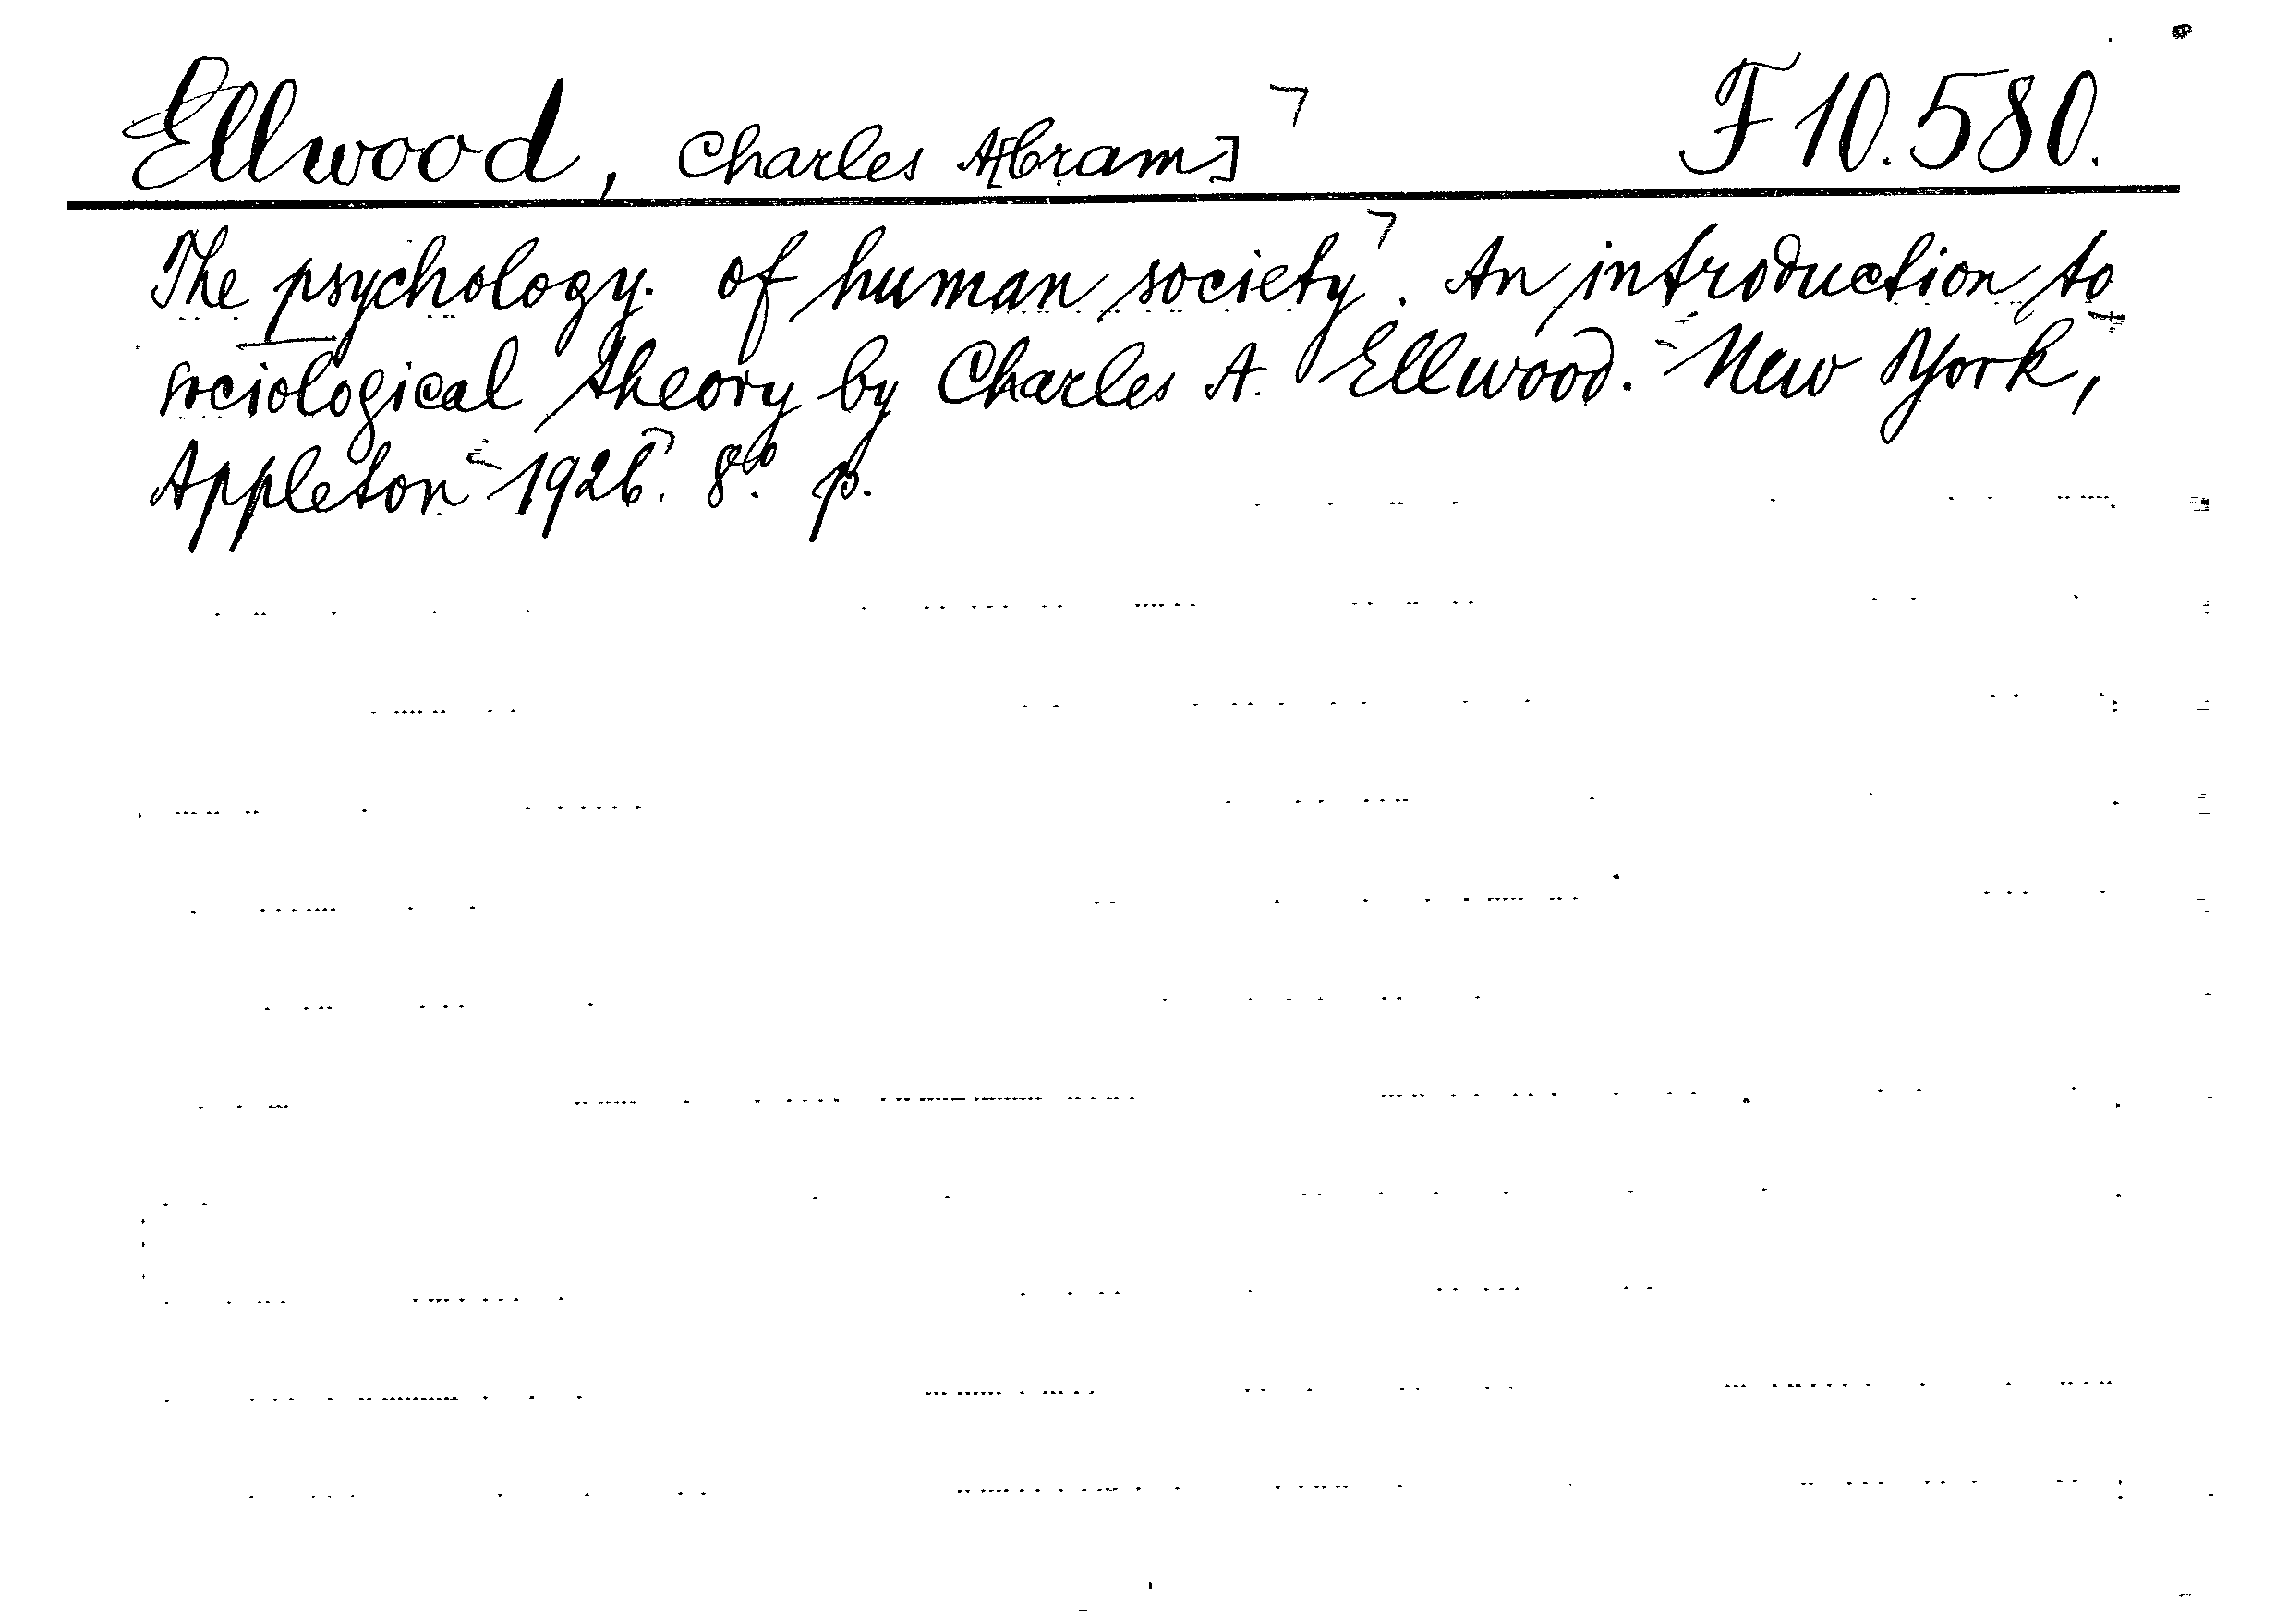 Ellwood, Charles A[bram] F 10.580.
The psychology of human society. An introduction to
sociological theory by Charles A. Ellwood. - New York,
Appleton - 1926. 8°. p.